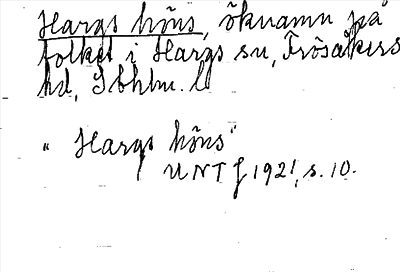 Hargs höns, öknamn på
folket i Hargs sn, Frösåkers
hd, Sthlm. l
"Hargs höns"
UNT J 1921, s. 10.